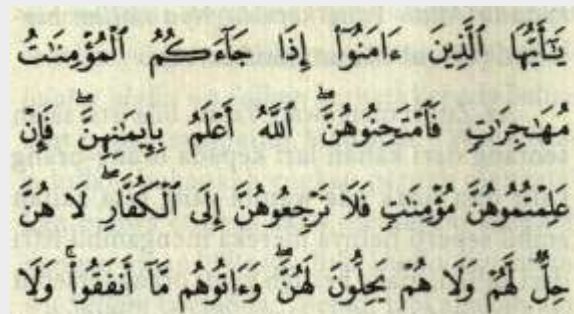 يَـٰٓأَيُّهَا ٱلَّذِينَ ءَامَنُوٓا۟ إِذَا جَآءَكُمُ ٱلْمُؤْمِنَـٰتُ
مُهَـٰجِرَٰتٍ فَٱمْتَحِنُوهُنَّ ۖ ٱللَّهُ أَعْلَمُ بِإِيمَـٰنِهِنَّ ۖ فَإِنْ
عَلِمْتُمُوهُنَّ مُؤْمِنَـٰتٍ فَلَا تَرْجِعُوهُنَّ إِلَى ٱلْكُفَّارِ ۖ لَا هُنَّ
حِلٌّ لَّهُمْ وَلَا هُمْ يَحِلُّونَ لَهُنَّ ۖ وَءَاتُوهُم مَّآ أَنفَقُوا۟ ۚ وَلَا